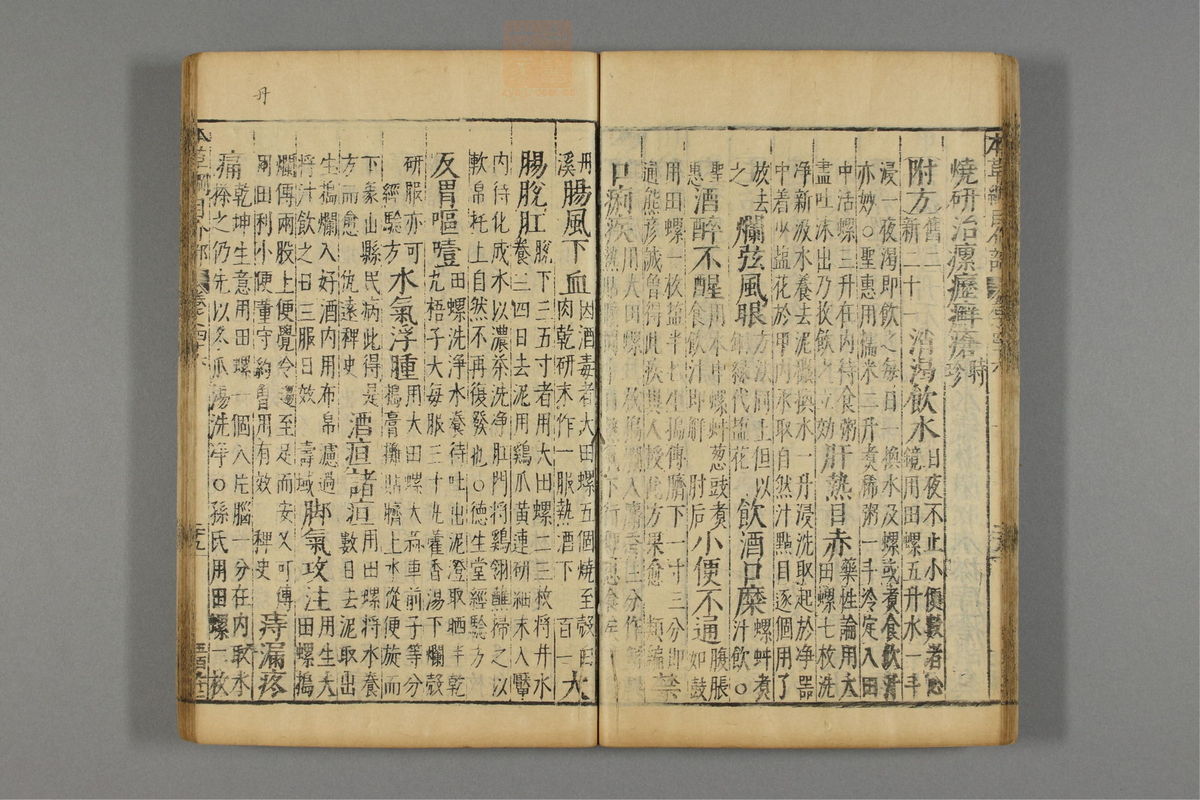 燒研治瘰癧癬瘡時珍
附方舊二新二十一消渴飲水日夜不止小便數者心
鏡用田螺五升水一斗
浸一夜渴即飲之每日一換水及螺或煮食飲汁
亦妙○聖惠用糯米二升煮稀粥一斗冷定入田
中活螺三升在內待食粥
盡吐沫出乃收飲之立効肝熱目赤藥性論用大
田螺七枚洗
淨新汲水養去泥穢換水一升浸洗取起於淨器
中着少鹽花於甲內承取自然汁點目逐個用了
放去之爛弦風眼方法同上但以
銅綠代鹽花飲酒口糜螺蚌煮
汁飲○
聖惠酒醉不醒用水中螺蚌葱豉煮
食飲汁即解肘后小便不通腹脹
如鼓
用田螺一枚鹽半匕生搗傅臍下一寸三分即
通熊彥誠曾得此疾異人授此方果愈類編禁
口痢疾用大田螺
丹溪腸風下血因酒毒者大田螺五個燒至殼白
肉乾研末作一服熱酒下百一大
腸脫肛脫下三五寸者用大田螺二三枚將井水
養三四日去泥用鷄爪黃連研細末入黶
內待化成水以濃茶洗淨肛門將鷄翎蘸掃之以
軟帛托上自然不再復發也○德生堂經驗方
反胃嘔噎田螺洗淨水養待吐出泥澄取晒半乾
丸梧子大每服三十丸藿香湯下爛殼
研服亦可經驗方水氣浮腫用大田螺大蒜車前子等分
搗膏攤貼臍上水從便旋而
下象山縣民病此得是
方而愈仇遠稗史酒疸諸疸用田螺將水養
數日去泥取出
生搗爛入好酒內用布帛濾過
將汁飲之日三服日效壽域脚氣攻注用生大
田螺搗
爛傅兩股上便覺冷趨至足而安又可傅
丹田利小便董守約曾用有效稗史痔漏疼
痛乾坤生意用田螺一個入片腦一分在內取水
搽之仍先以冬瓜湯洗淨○孫氏用田螺一枚